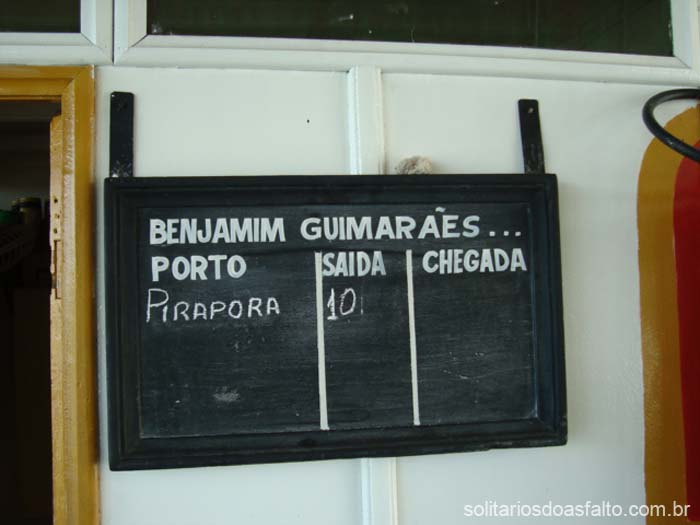 BENJAMIM GUIMARÃES...
PORTO SAIDA CHEGADA
PIRAPORA 10
solitariosdoasfalto.com.br